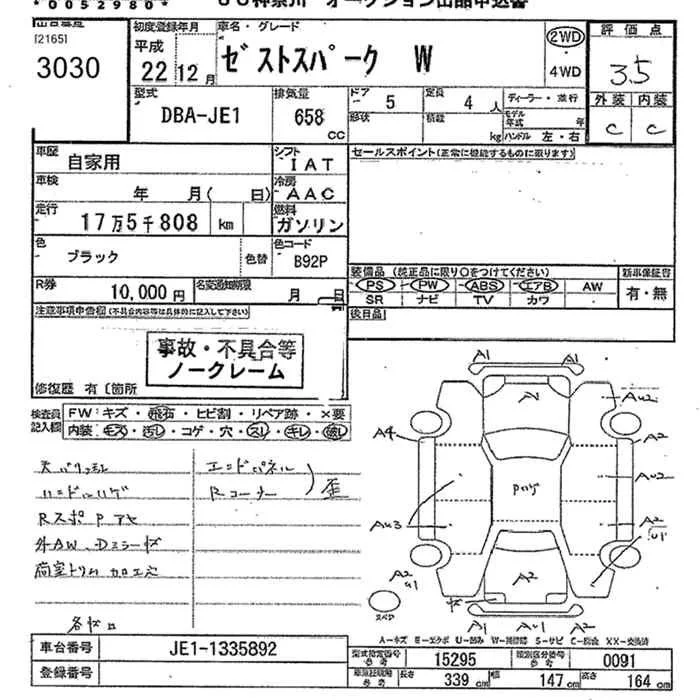 *0052980*
[2165]
3030
初度登録年月
平成
22年 12月
車名・グレード
ゼストスパーク W
2WD
4WD
評価点
3.5
外装 内装
C C
型式
DBA-JE1
排気量
658 CC
ドア
5
定員
4人
形状
積載
kg
ディーラー・並行
モデル年式 年
ハンドル 左・右
車歴
自家用
シフト
IAT
セールスポイント(正常に機能するものに限ります)
車検
年 月( 日)
冷房
AAC
走行
17万5千808 km
燃料
ガソリン
色
ブラック
色替
色コード
B92P
R券
10,000円
名変通知期限
月 日
装備品 (純正品に限り○をつけてください)
PS PW ABS エアB AW
SR ナビ TV カワ
新車保証書
有・無
後日品
注意事項申告欄(不具合内容等は具体的に記入して下さい)
事故・不具合等
ノークレーム
修復歴 有〔箇所
検査員記入欄
FW:キズ・飛石・ヒビ割・リペア跡・×要
内装:キズ・汚レ・コゲ・穴・スレ・キレ・破レ
エンドパネル
Rコーナー
歪
ハンドルハゲ
RスポPアセ
外AW、Dミラーキズ
荷室トリム加工穴
A1 A1
AU2
A4 A2
AU2
AU3
A2
U1
A2
U1
A2
スペア
A1 AU1 A2
A-キズ E-エクボ U-凹み W-補修跡 S-サビ C-腐食 XX-交換済
車台番号
JE1-1335892
登録番号
型式指定番号 参考
15295
類別区分番号 参考
0091
長さ
339 cm
幅
147 cm
高さ
164 cm